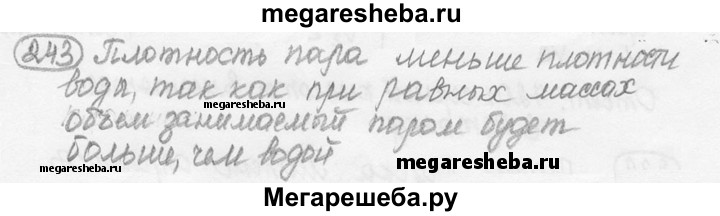 megaresheba.ru
243 Плотность пара меньше плотности
воды, так как при равных массах
megaresheba.ru
объем занимаемый паром будет
больше, чем водой
megaresheba.ru
megaresheba.ru
Мегарешеба.ру